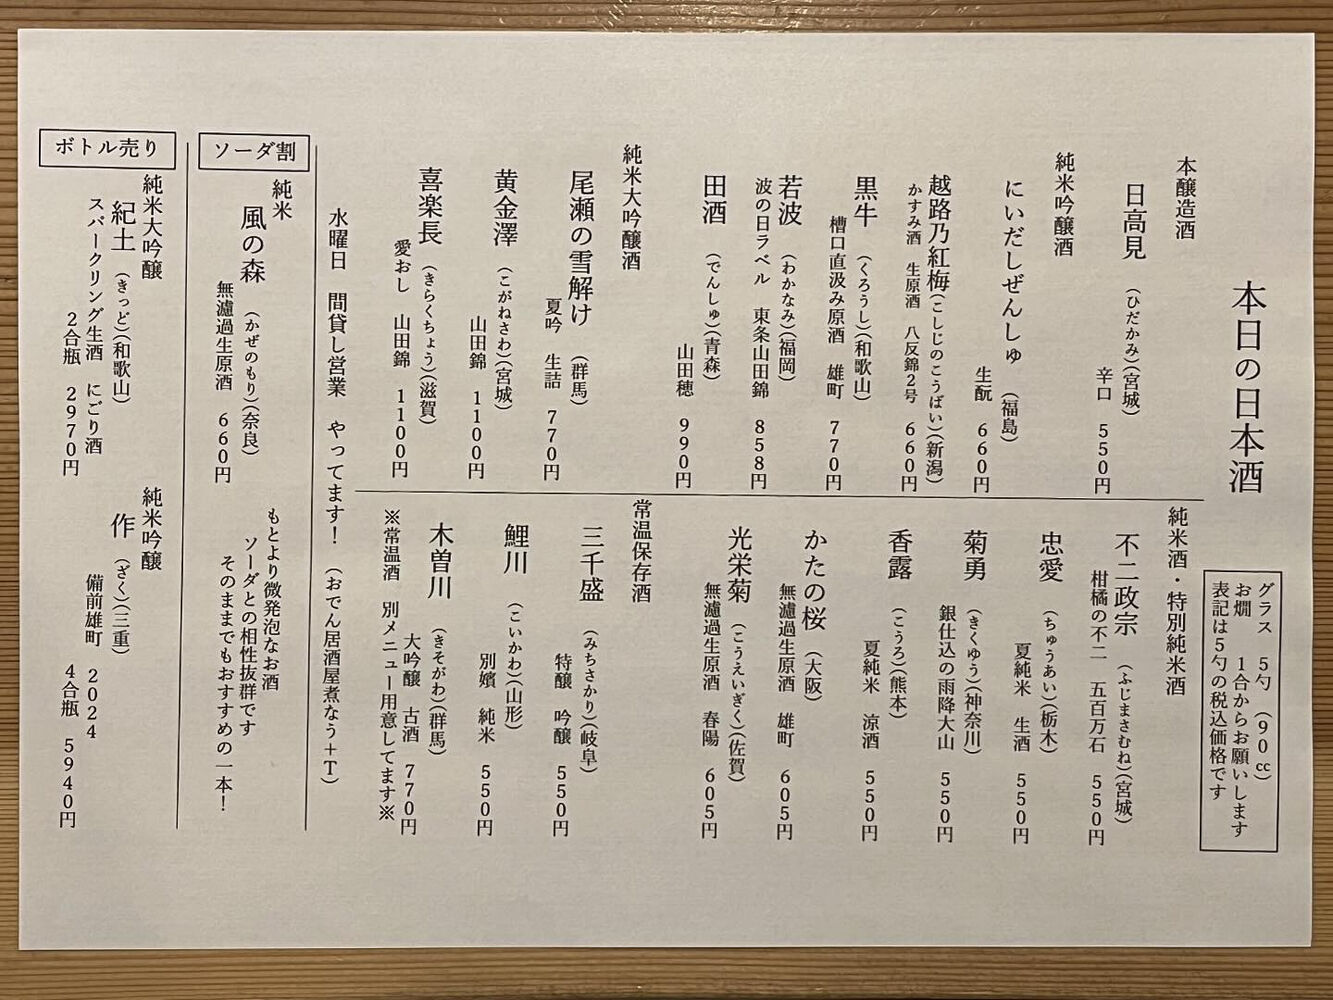 本日の日本酒
グラス　5勺　(90cc)
お燗　1合からお願いします
表記は5勺の税込価格です
本醸造酒
日高見　(ひだかみ)(宮城)
辛口　550円
純米吟醸酒
にいだしぜんしゅ　(福島)
生酛　660円
越路乃紅梅(こしじのこうばい)(新潟)
かすみ酒　生原酒　八反錦2号　660円
黒牛　(くろうし)(和歌山)
槽口直汲み原酒　雄町　770円
若波　(わかなみ)(福岡)
波の日ラベル　東条山田錦　858円
田酒　(でんしゅ)(青森)
山田穂　990円
純米大吟醸酒
尾瀬の雪解け　(群馬)
夏吟　生詰　770円
黄金澤　(こがねさわ)(宮城)
山田錦　1100円
喜楽長　(きらくちょう)(滋賀)
愛おし　山田錦　1100円
純米酒・特別純米酒
不二政宗　(ふじまさむね)(宮城)
柑橘の不二　五百万石　550円
忠愛　(ちゅうあい)(栃木)
夏純米　生酒　550円
菊勇　(きくゆう)(神奈川)
銀仕込の雨降大山　550円
香露　(こうろ)(熊本)
夏純米　涼酒　550円
かたの桜　(大阪)
無濾過生原酒　雄町　605円
光栄菊　(こうえいぎく)(佐賀)
無濾過生原酒　春陽　605円
常温保存酒
三千盛　(みちさかり)(岐阜)
特醸　吟醸　550円
鯉川　(こいかわ)(山形)
別嬪　純米　550円
木曽川　(きそがわ)(群馬)
大吟醸　古酒　770円
※常温酒　別メニュー用意してます※
水曜日　間貸し営業　やってます！　(おでん居酒屋煮なう＋T)
ソーダ割
純米
風の森　(かぜのもり)(奈良)
無濾過生原酒　660円
もとより微発泡なお酒
ソーダとの相性抜群です
そのままでもおすすめの一本！
ボトル売り
純米大吟醸
紀土　(きっど)(和歌山)
スパークリング生酒　にごり酒
2合瓶　2970円
純米吟醸
作　(ざく)(三重)
備前雄町　2024
4合瓶　5940円